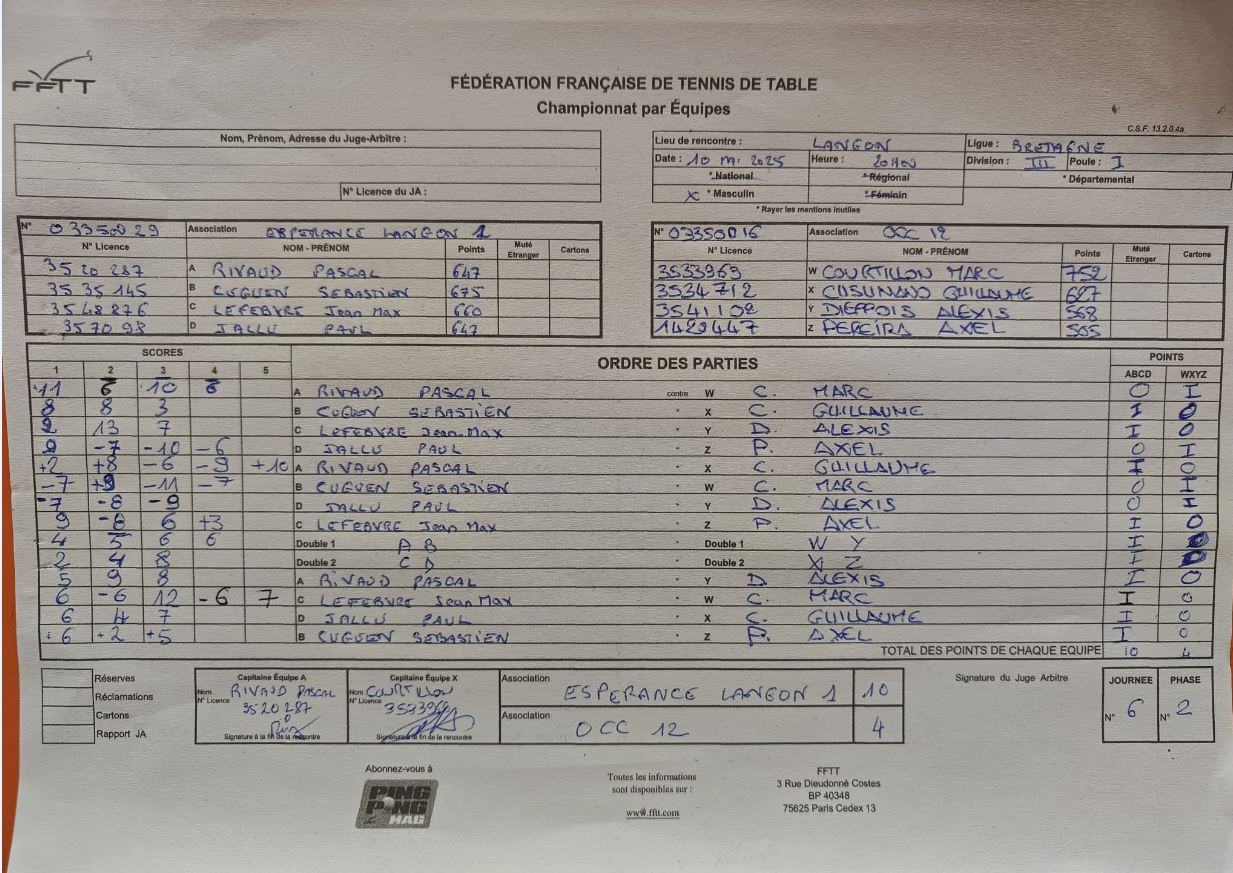 FFTT
FÉDÉRATION FRANÇAISE DE TENNIS DE TABLE
Championnat par Équipes
C.S.F. 13.2.0.4a
Nom, Prénom, Adresse du Juge-Arbitre :
N° Licence du JA :
Lieu de rencontre : LANGON Ligue : BRETAGNE
Date : 10 mai 2025 Heure : 20H00 Division : III Poule : I
* National * Régional * Départemental
X * Masculin * Féminin
* Rayer les mentions inutiles
N° 03350029 Association ESPERANCE LANGON 1
N° Licence NOM - PRÉNOM Points Muté Etranger Cartons
3520287 A RIVAUD PASCAL 647
3535145 B CUGUEN SEBASTIEN 675
3548876 C LEFEBVRE Jean Max 660
3570 98 D JALLU PAUL 647
N° 03350016 Association OCC 12
N° Licence NOM - PRÉNOM Points Muté Etranger Cartons
3533969 W COURTILLON MARC 752
3534712 X CUSUMANO GUILLAUME 627
3541102 Y DIEPPOIS ALEXIS 568
1420447 Z PEREIRA AXEL 505
SCORES ORDRE DES PARTIES POINTS
1 2 3 4 5 ABCD WXYZ
-11 6 -10 6 A RIVAUD PASCAL contre W C. MARC 0 I
8 8 3 B CUGUEN SEBASTIEN " X C. GUILLAUME I 0
2 13 7 C LEFEBVRE Jean-Max " Y D. ALEXIS I 0
9 -7 -10 -6 D JALLU PAUL " Z P. AXEL 0 I
+2 +8 -6 -9 +10 A RIVAUD PASCAL " X C. GUILLAUME I 0
-7 +9 -11 -7 B CUGUEN SEBASTIEN " W C. MARC 0 I
-7 -8 -9 D JALLU PAUL " Y D. ALEXIS 0 I
9 -8 6 +3 C LEFEBVRE Jean Max " Z P. AXEL I 0
4 -5 6 6 Double 1 A B " Double 1 W Y I 0
2 4 8 Double 2 C D " Double 2 X Z I 0
5 9 8 A RIVAUD PASCAL " Y D. ALEXIS I 0
6 -6 12 -6 7 C LEFEBVRE Jean Max " W C. MARC I 0
6 4 7 D JALLU PAUL " X C. GUILLAUME I 0
+6 +2 +5 B CUGUEN SEBASTIEN " Z P. AXEL I 0
TOTAL DES POINTS DE CHAQUE EQUIPE 10 4
Réserves
Réclamations
Cartons
Rapport JA
Capitaine Équipe A
Nom RIVAUD PASCAL
N° Licence 3520287
Signature à la fin de la rencontre
Capitaine Équipe X
Nom COURTILLON
N° Licence 3533969
Signature à la fin de la rencontre
Association ESPERANCE LANGON 1 10
Association OCC 12 4
Signature du Juge Arbitre
JOURNEE PHASE
N° 6 N° 2
Abonnez-vous à
PING PONG MAG
Toutes les informations
sont disponibles sur :
www.fftt.com
FFTT
3 Rue Dieudonné Costes
BP 40348
75625 Paris Cedex 13